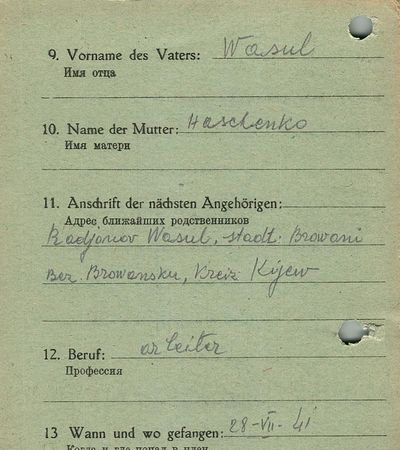 9. Vorname des Vaters: Wasul
Имя отца
10. Name der Mutter: Haschenko
Имя матери
11. Anschrift der nächsten Angehörigen:
Адрес ближайших родственников
Radjonov Wasul, stadt. Browani
Bez. Browansku, Kreiz Kijew
12. Beruf: arbeiter
Профессия
13 Wann und wo gefangen: 28-VII-41
Когда и где попал в плен